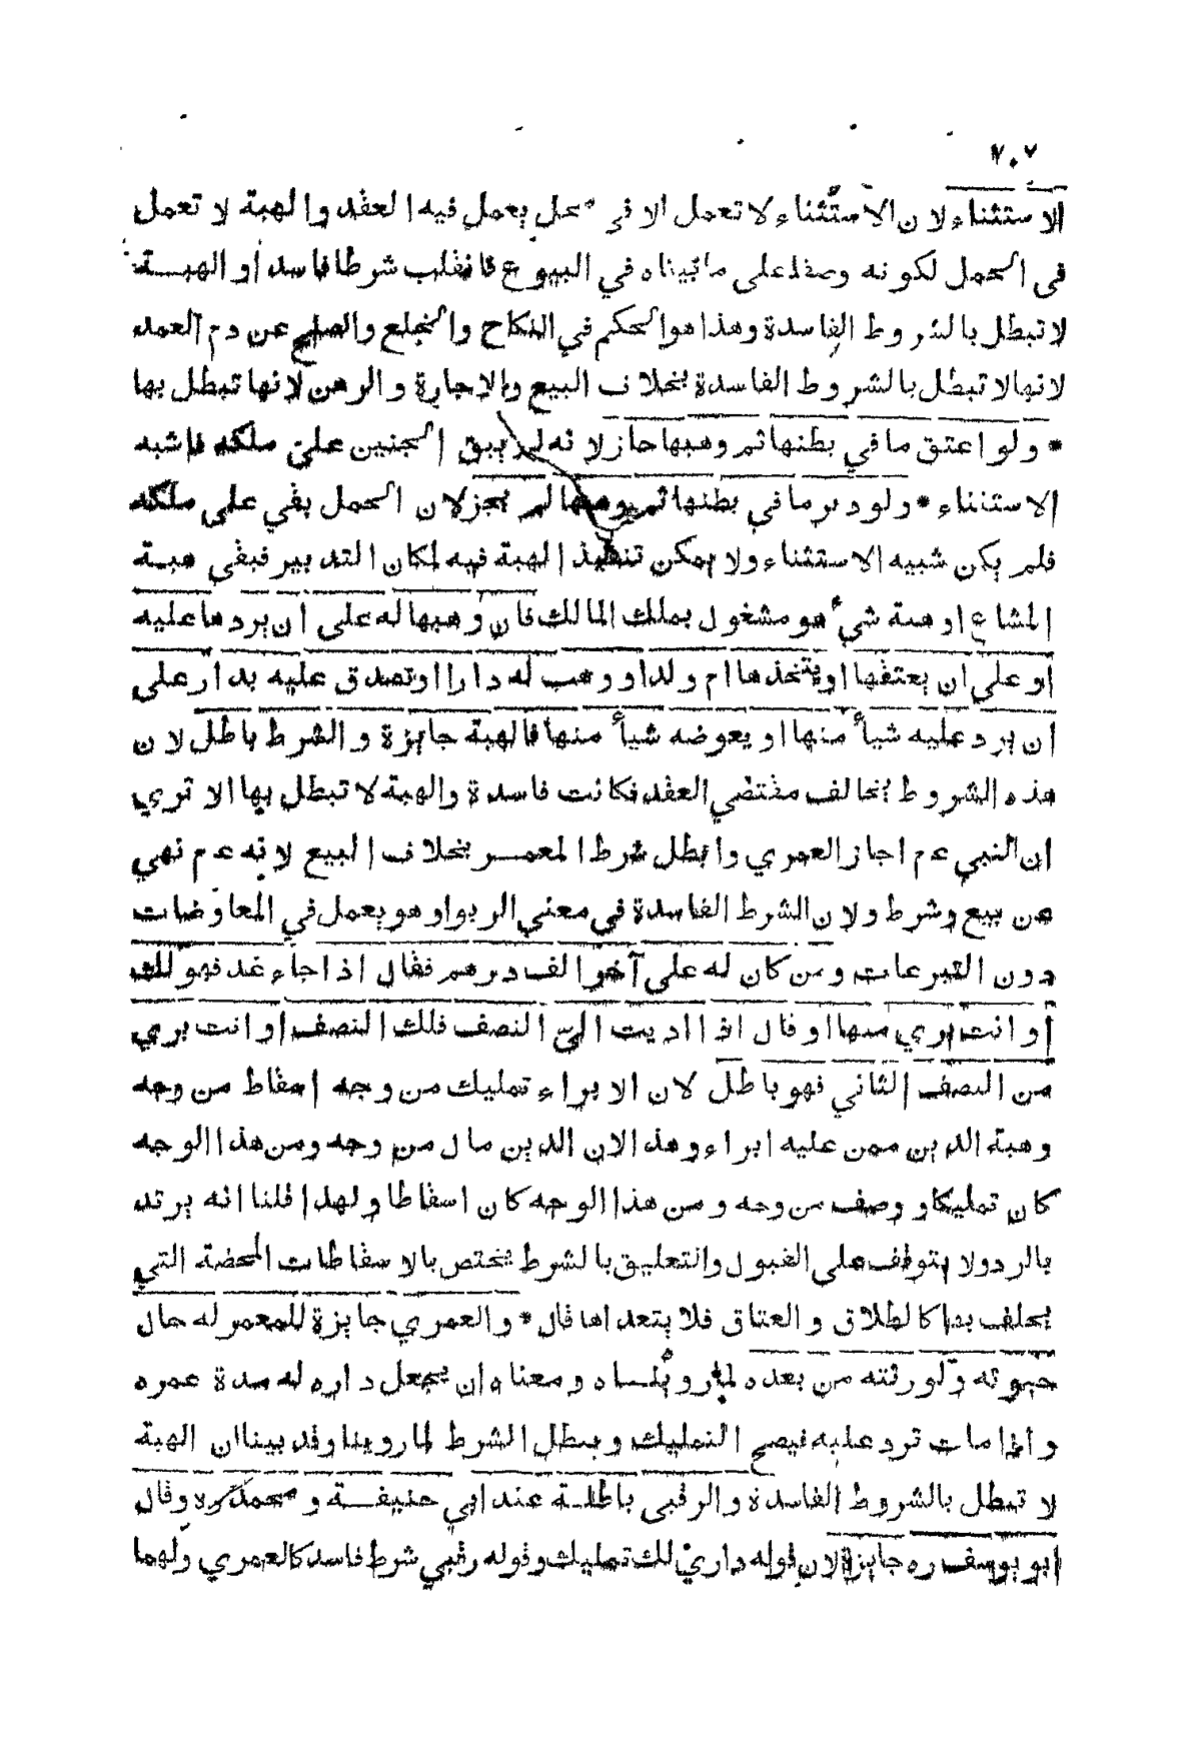 ٧٠٧
الاستثناء لان الاستثناء لا تعمل الا في محل يعمل فيه العقد والهبة لا تعمل
في الحمل لكونه وصفا على ما بيناه في البيوع فانقلب شرطا فاسدا والهبـــة
لا تبطل بالشروط الفاسدة وهذا هو الحكم في النكاح والخلع والصلح عن دم العمد
لانها لا تبطل بالشروط الفاسدة بخلاف البيع والاجارة والرهن لانها تبطل بها
* ولو اعتق ما في بطنها ثم وهبها جاز لانه لم يبق الجنين على ملكه فاشبه
الاستثناء * ولو دبر ما في بطنها ثم وهبها لم يجز لان الحمل بقي على ملكه
فلم يكن شبيه الاستثناء ولا يمكن تنفيذ الهبة فيه لمكان التدبير فبقي هبـة
المشاع او هبة شيء هو مشغول بملك المالك فان وهبها له على ان يردها عليه
او على ان يعتقها او يتخذها ام ولد او وهب له دارا او تصدق عليه بدار على
ان يرد عليه شيأ منها او يعوضه شيأ منها فالهبة جايزة والشرط باطل لان
هذه الشروط تخالف مقتضي العقد فكانت فاسدة والهبة لا تبطل بها الا تري
ان النبي عم اجاز العمري وابطل شرط المعمـر بخلاف البيع لانه عم نهي
عن بيع وشرط ولان الشرط الفاسدة في معني الربوا وهو يعمل في المعاوضات
دون التبرعات ومن كان له على آخر الف درهم فقال اذا جاء غد فهو لك
او انت بري منها او قال اذا اديت اليّ النصف فلك النصف او انت بري
من النصف الثاني فهو باطل لان الابراء تمليك من وجه اسقاط من وجه
وهبة الدين ممن عليه ابراء وهذا لان الدين مال من وجه ومن هذا الوجه
كان تمليكا ووصف من وجه ومن هذا الوجه كان اسقاطا ولهذا قلنا انه يرتد
بالرد ولا يتوقف على القبول والتعليق بالشرط يختص بالاسقاطات المحضة التي
يحلف بها كالطلاق والعتاق فلا يتعداها قال * والعمري جايزة للمعمر له حال
حيوته ولورثته من بعده لما رويناه ومعناه ان يجعل داره له مدة عمره
واذا مات ترد عليه فيصح التمليك ويبطل الشرط لما روينا وقد بينا ان الهبة
لا تبطل بالشروط الفاسدة والرقبي باطلـة عند ابي حنيفـــة ومحمد ره وقال
ابو يوسف ره جايزة لان قوله داري لك تمليك وقوله رقبي شرط فاسد كالعمري ولهما